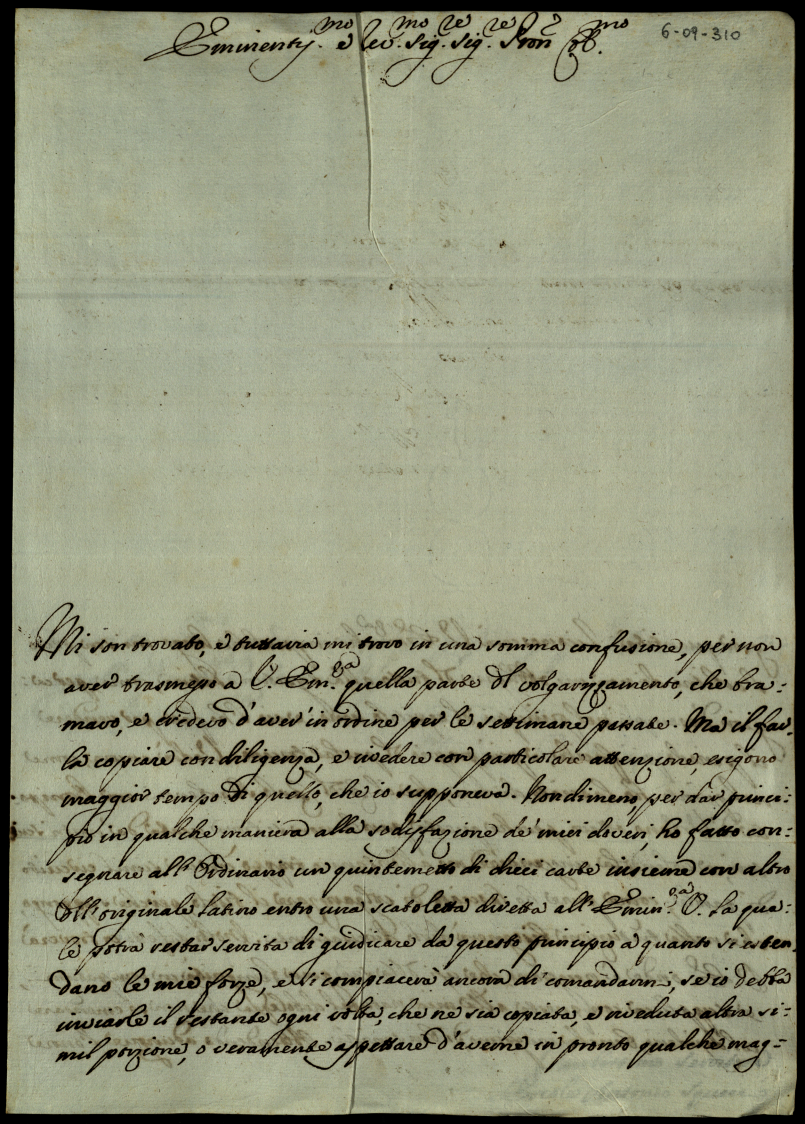 Eminentiss.mo e Rev.mo Sig.re Sig.re Pron.e Col.mo
6-09-310
Mi son trovato, e tuttavia mi trovo in una somma confusione, per non
aver trasmesso a V. Em.za quella parte del volgarizzamento, che bra-
mavo, e credevo d'aver' in ordine per le settimane passate. Ma il far-
la copiare con diligenza, e rivedere con particolare attenzione, esigono
maggior tempo di quello, che io supponeva. Nondimeno, per dar princi-
pio in qualche maniera alla sodisfazione de' miei doveri, ho fatto con-
segnare all' Ordinario un quinternetto di dieci carte insieme con altro
dell' originale latino entro una scatoletta diretta all' Emin.za V. La qua-
le potrà restar servita di giudicare da questo principio a quanto si esten-
dano le mie forze, e si compiacerà ancora di comandarmi, se io debba
inviarle il restante ogni volta, che ne sia copiata, e riveduta altra si-
mil porzione, o veramente aspettare d'averne in pronto qualche mag-